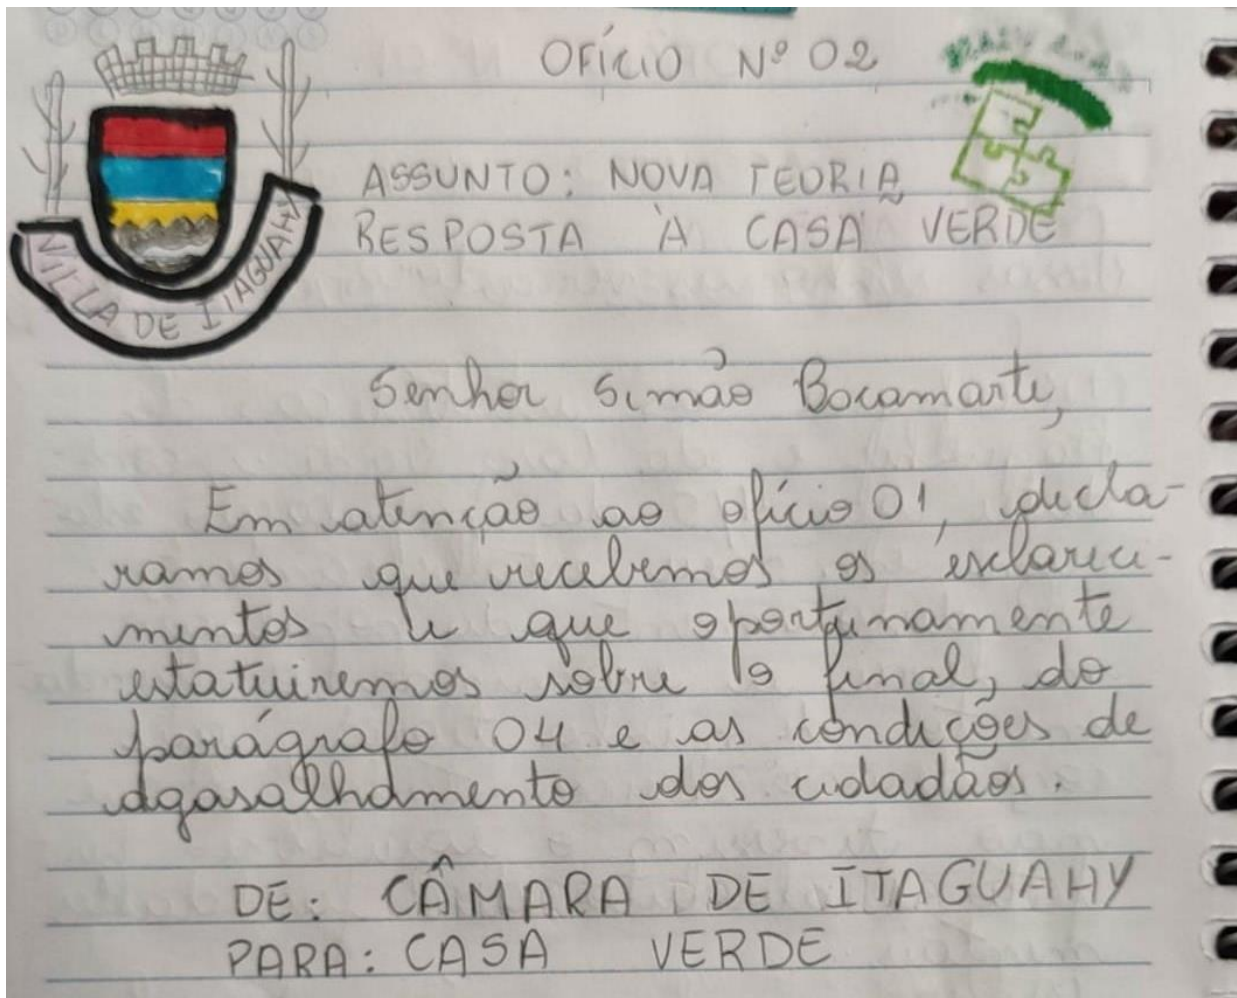 OFÍCIO Nº 02
ASSUNTO: NOVA TEORIA
RESPOSTA À CASA VERDE
VILLA DE ITAGUAHY
Senhor Simão Bocamarte,
Em atenção ao ofício 01, decla-
ramos que recebemos os esclareci-
mentos e que oportunamente
estatuiremos sobre o final, do
parágrafo 04 e as condições de
agasalhamento dos cidadãos.
DE: CÂMARA DE ITAGUAHY
PARA: CASA VERDE